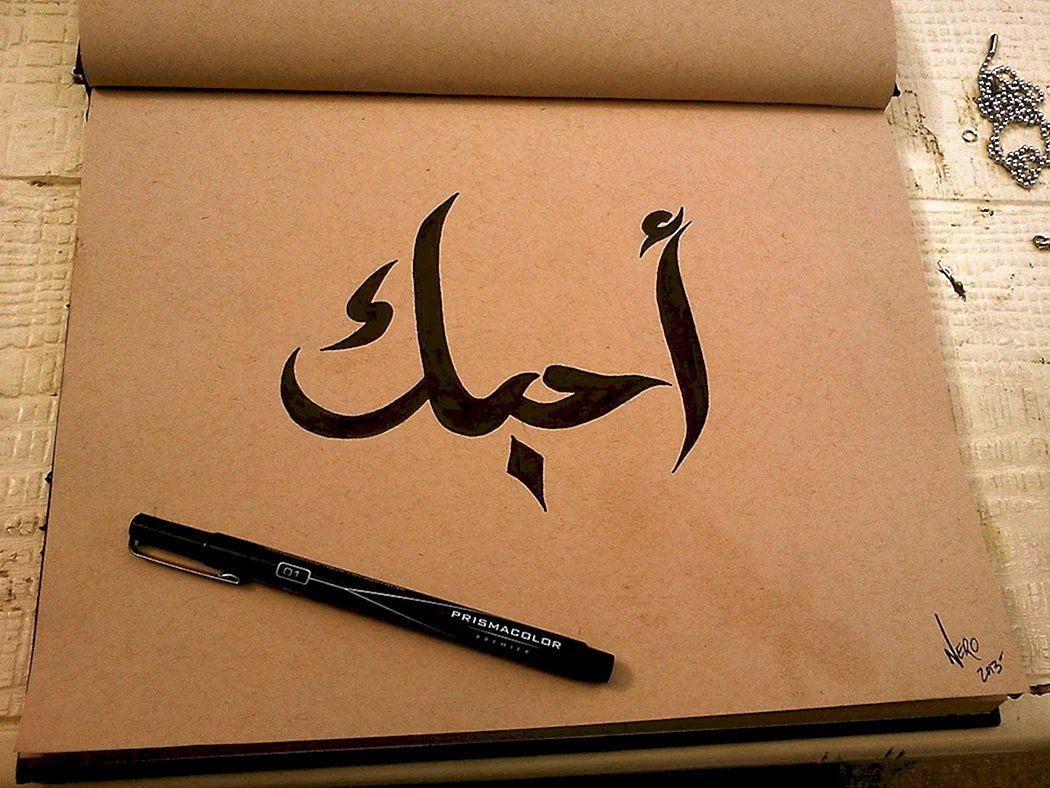 أحبك
01
PRISMACOLOR
PREMIER
NERO
2013